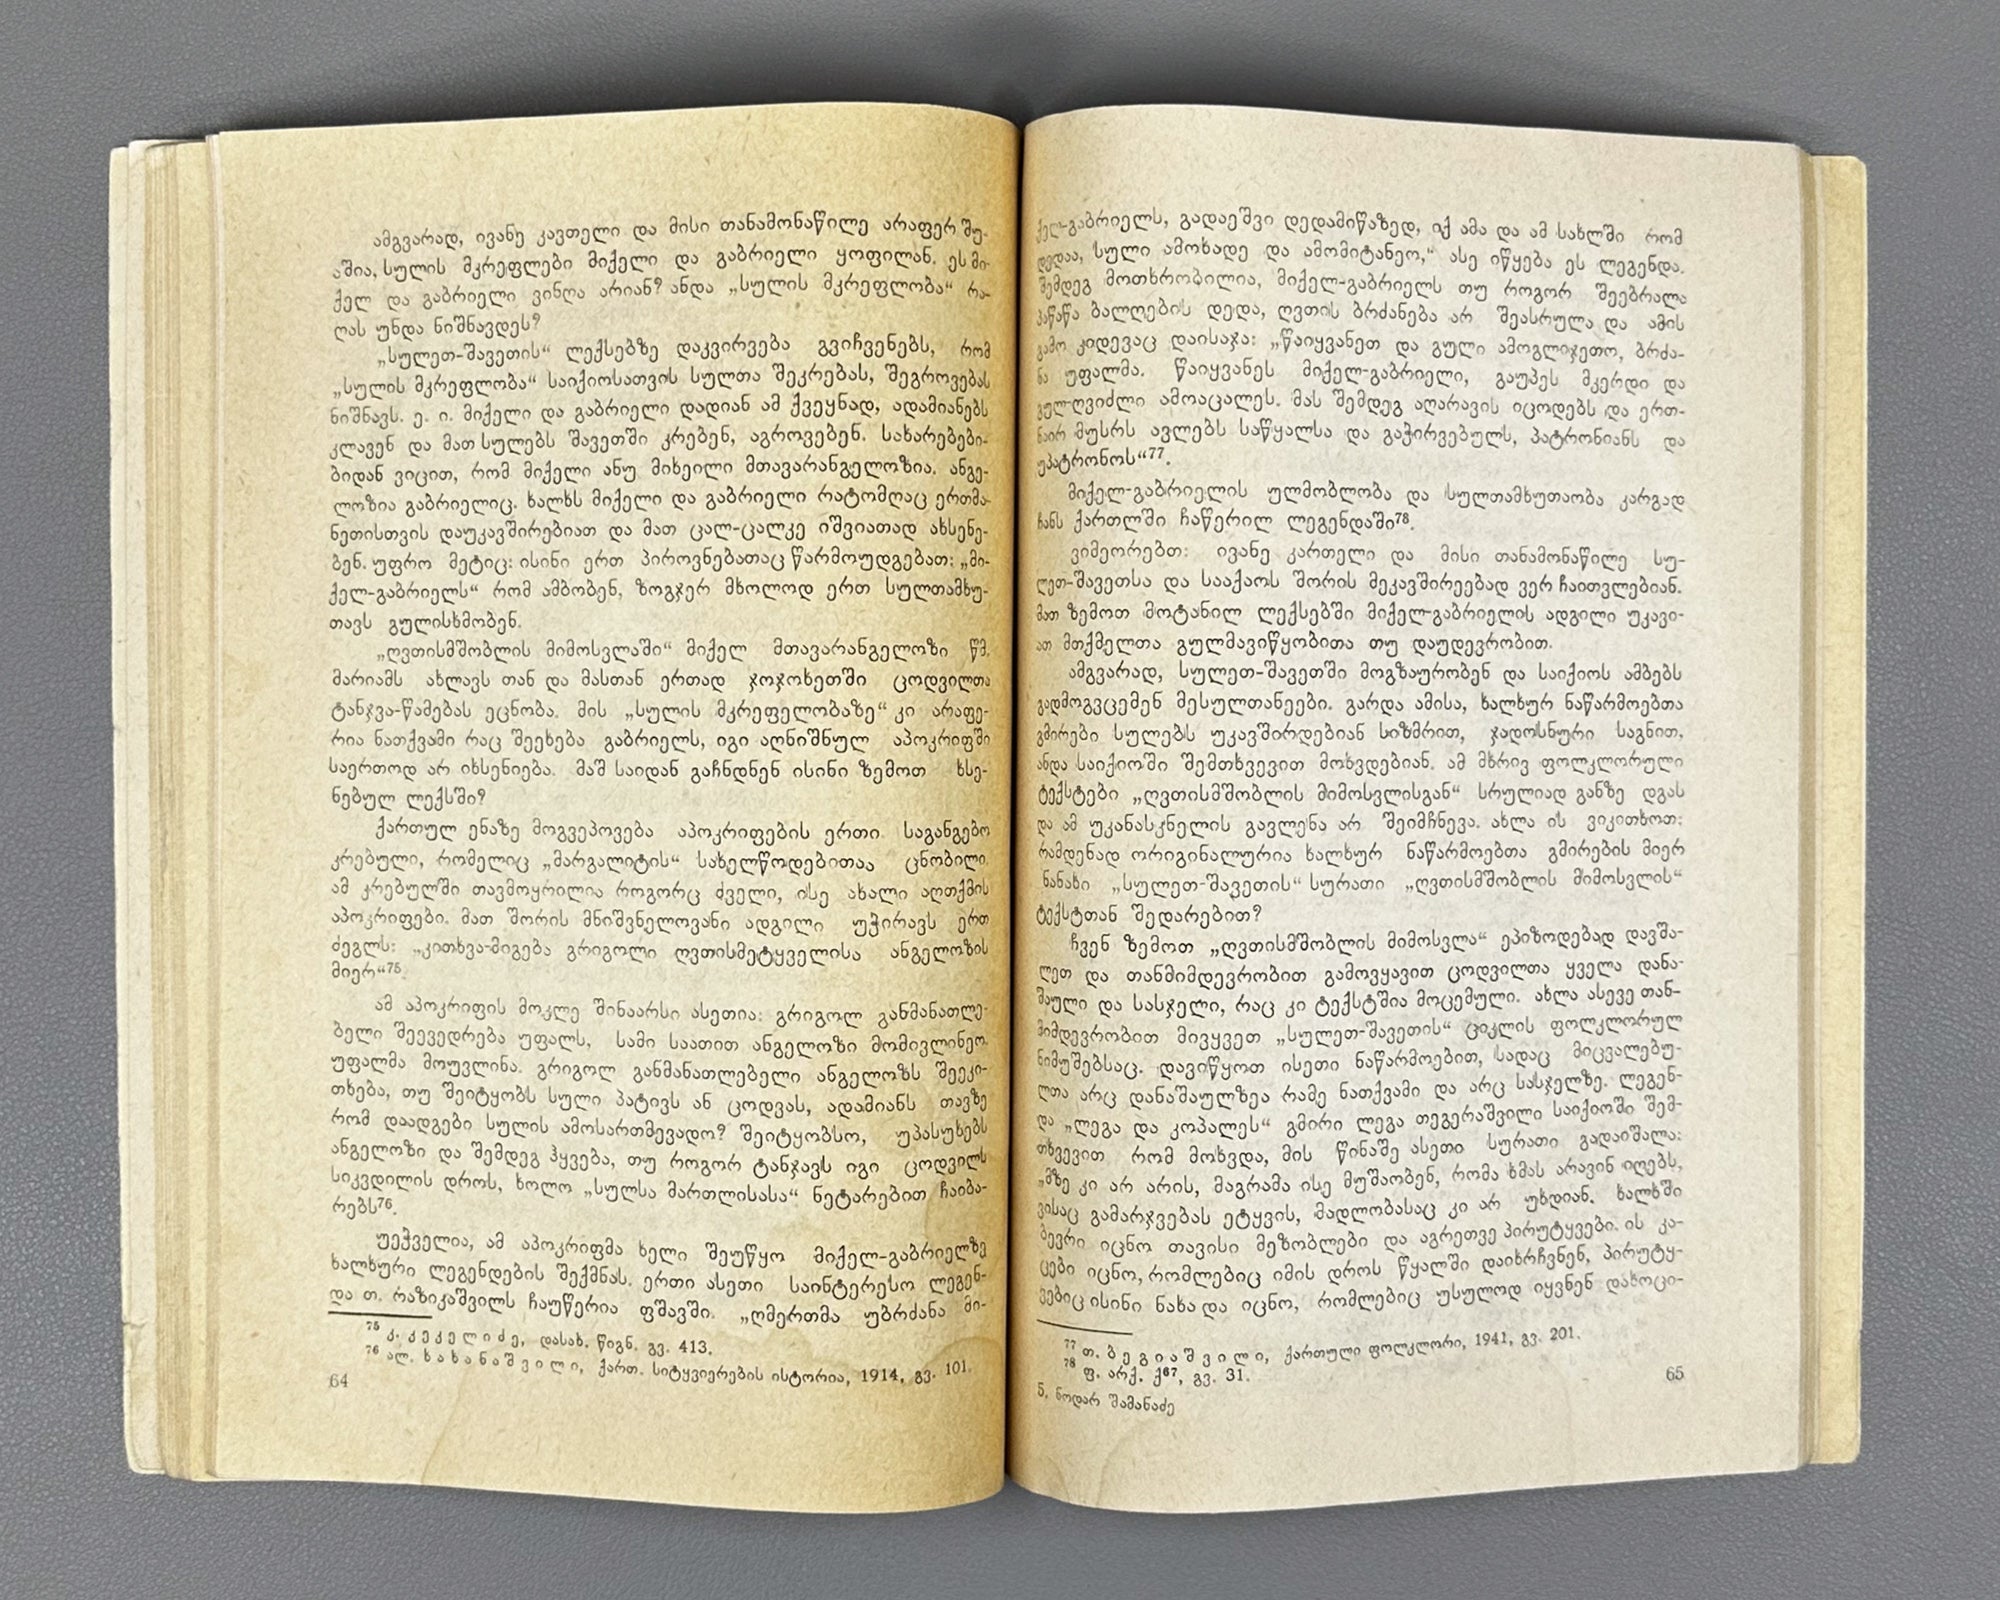 ამგვარად, ივანე კავთელი და მისი თანამონაწილე არაფერ შუ-
აშია, სულის მკრეფლები მიქელი და გაბრიელი ყოფილან. ეს მი-
ქელ და გაბრიელი ვინღა არიან? ანდა „სულის მკრეფლობა“ რა-
ღას უნდა ნიშნავდეს?
„სულეთ-შავეთის“ ლექსებზე დაკვირვება გვიჩვენებს, რომ
„სულის მკრეფლობა“ საიქიოსათვის სულთა შეკრებას, შეგროვებას
ნიშნავს. ე. ი. მიქელი და გაბრიელი დადიან ამ ქვეყნად, ადამიანებს
კლავენ და მათ სულებს შავეთში კრებენ, აგროვებენ. სახარებები-
ბიდან ვიცით, რომ მიქელი ანუ მიხეილი მთავარანგელოზია. ანგე-
ლოზია გაბრიელიც. ხალხს მიქელი და გაბრიელი რატომღაც ერთმა-
ნეთისთვის დაუკავშირებიათ და მათ ცალ-ცალკე იშვიათად ახსენე-
ბენ. უფრო მეტიც: ისინი ერთ პიროვნებათაც წარმოუდგებათ: „მი-
ქელ-გაბრიელს“ რომ ამბობენ, ზოგჯერ მხოლოდ ერთ სულთამხუ-
თავს გულისხმობენ.
„ღვთისმშობლის მიმოსვლაში“ მიქელ მთავარანგელოზი წმ.
მარიამს ახლავს თან და მასთან ერთად ჯოჯოხეთში ცოდვილთა
ტანჯვა-წამებას ეცნობა. მის „სულის მკრეფელობაზე“ კი არაფე-
რია ნათქვამი რაც შეეხება გაბრიელს, იგი აღნიშნულ აპოკრიფში
საერთოდ არ იხსენიება. მაშ საიდან გაჩნდნენ ისინი ზემოთ ხსე-
ნებულ ლექსში?
ქართულ ენაზე მოგვეპოვება აპოკრიფების ერთი საგანგებო
კრებული, რომელიც „მარგალიტის“ სახელწოდებითაა ცნობილი.
ამ კრებულში თავმოყრილია როგორც ძველი, ისე ახალი აღთქმის
აპოკრიფები. მათ შორის მნიშვნელოვანი ადგილი უჭირავს ერთ
ძეგლს: „კითხვა-მიგება გრიგოლი ღვთისმეტყველისა ანგელოზის
მიერ“⁷⁵.
ამ აპოკრიფის მოკლე შინაარსი ასეთია: გრიგოლ განმანათლე-
ბელი შეევედრება უფალს, სამი საათით ანგელოზი მომივლინეო.
უფალმა მოუვლინა. გრიგოლ განმანათლებელი ანგელოზს შეეკი-
თხება, თუ შეიტყობს სული პატივს ან ცოდვას, ადამიანს თავზე
რომ დაადგები სულის ამოსართმევადო? შეიტყობსო, უპასუხებს
ანგელოზი და შემდეგ ჰყვება, თუ როგორ ტანჯავს იგი ცოდვილს
სიკვდილის დროს, ხოლო „სულსა მართლისასა“ ნეტარებით ჩაიბა-
რებს⁷⁶.
უეჭველია, ამ აპოკრიფმა ხელი შეუწყო მიქელ-გაბრიელზე
ხალხური ლეგენდების შექმნას. ერთი ასეთი საინტერესო ლეგენ-
და თ. რაზიკაშვილს ჩაუწერია ფშავში. „ღმერთმა უბრძანა მი-
⁷⁵ კ. კეკელიძე, დასახ. წიგნ. გვ. 413.
⁷⁶ ალ. ხახანაშვილი, ქართ. სიტყვიერების ისტორია, 1914, გვ. 101.
64
ქელ-გაბრიელს, გადაეშვი დედამიწაზედ, იქ ამა და ამ სახლში რომ
დედაა, სული ამოხადე და ამომიტანეო,“ ასე იწყება ეს ლეგენდა.
შემდეგ მოთხრობილია, მიქელ-გაბრიელს თუ როგორ შეებრალა
პაწაწა ბალღების დედა, ღვთის ბრძანება არ შეასრულა და ამის
გამო კიდევაც დაისაჯა: „წაიყვანეთ და გული ამოგლიჯეთო, ბრძა-
ნა უფალმა. წაიყვანეს მიქელ-გაბრიელი, გაუპეს მკერდი და
გულ-ღვიძლი ამოაცალეს. მას შემდეგ აღარავის იცოდებს და ერთ-
ნაირ მუსრს ავლებს საწყალსა და გაჭირვებულს, პატრონიანს და
უპატრონოს“⁷⁷.
მიქელ-გაბრიელის ულმობლობა და სულთამხუთაობა კარგად
ჩანს ქართლში ჩაწერილ ლეგენდაში⁷⁸.
ვიმეორებთ: ივანე კართელი და მისი თანამონაწილე სუ-
ლეთ-შავეთსა და სააქაოს შორის მეკავშირეებად ვერ ჩაითვლებიან.
მათ ზემოთ მოტანილ ლექსებში მიქელ-გაბრიელის ადგილი უკავი-
ათ მთქმელთა გულმავიწყობითა თუ დაუდევრობით.
ამგვარად, სულეთ-შავეთში მოგზაურობენ და საიქიოს ამბებს
გადმოგვცემენ მესულთანეები. გარდა ამისა, ხალხურ ნაწარმოებთა
გმირები სულებს უკავშირდებიან სიზმრით, ჯადოსნური საგნით,
ანდა საიქიოში შემთხვევით მოხვდებიან. ამ მხრივ ფოლკლორული
ტექსტები „ღვთისმშობლის მიმოსვლისგან“ სრულიად განზე დგას
და ამ უკანასკნელის გავლენა არ შეიმჩნევა. ახლა ის ვიკითხოთ:
რამდენად ორიგინალურია ხალხურ ნაწარმოებთა გმირების მიერ
ნანახი „სულეთ-შავეთის“ სურათი „ღვთისმშობლის მიმოსვლის“
ტექსტთან შედარებით?
ჩვენ ზემოთ „ღვთისმშობლის მიმოსვლა“ ეპიზოდებად დავშა-
ლეთ და თანმიმდევრობით გამოვყავით ცოდვილთა ყველა დანა-
შაული და სასჯელი, რაც კი ტექსტშია მოცემული. ახლა ასევე თან-
მიმდევრობით მივყვეთ „სულეთ-შავეთის“ ციკლის ფოლკლორულ
ნიმუშებსაც. დავიწყოთ ისეთი ნაწარმოებით, სადაც მიცვალებუ-
ლთა არც დანაშაულზეა რამე ნათქვამი და არც სასჯელზე. ლეგენ-
და „ლეგა და კოპალეს“ გმირი ლეგა თეგერაშვილი საიქიოში შემ-
თხვევით რომ მოხვდა, მის წინაშე ასეთი სურათი გადაიშალა:
„მზე კი არ არის, მაგრამა ისე მუშაობენ, რომა ხმას არავინ იღებს,
ვისაც გამარჯვებას ეტყვის, მადლობასაც კი არ უხდიან. ხალხში
ბევრი იცნო თავისი მეზობლები და აგრეთვე პირუტყვები. ის კა-
ცები იცნო, რომლებიც იმის დროს წყალში დაიხრჩვნენ, პირუტყ-
ვებიც ისინი ნახა და იცნო, რომლებიც უსულოდ იყვნენ დახოცი-
⁷⁷ თ. ბეგიაშვილი, ქართული ფოლკლორი, 1941, გვ. 201.
⁷⁸ ფ. არქ. ქ⁶⁷, გვ. 31.
5. ნოდარ შამანაძე
65